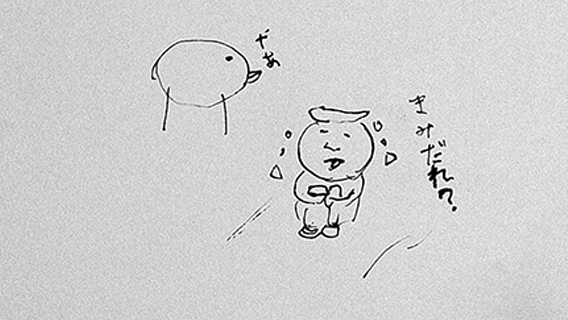 やあ
きみだれ？